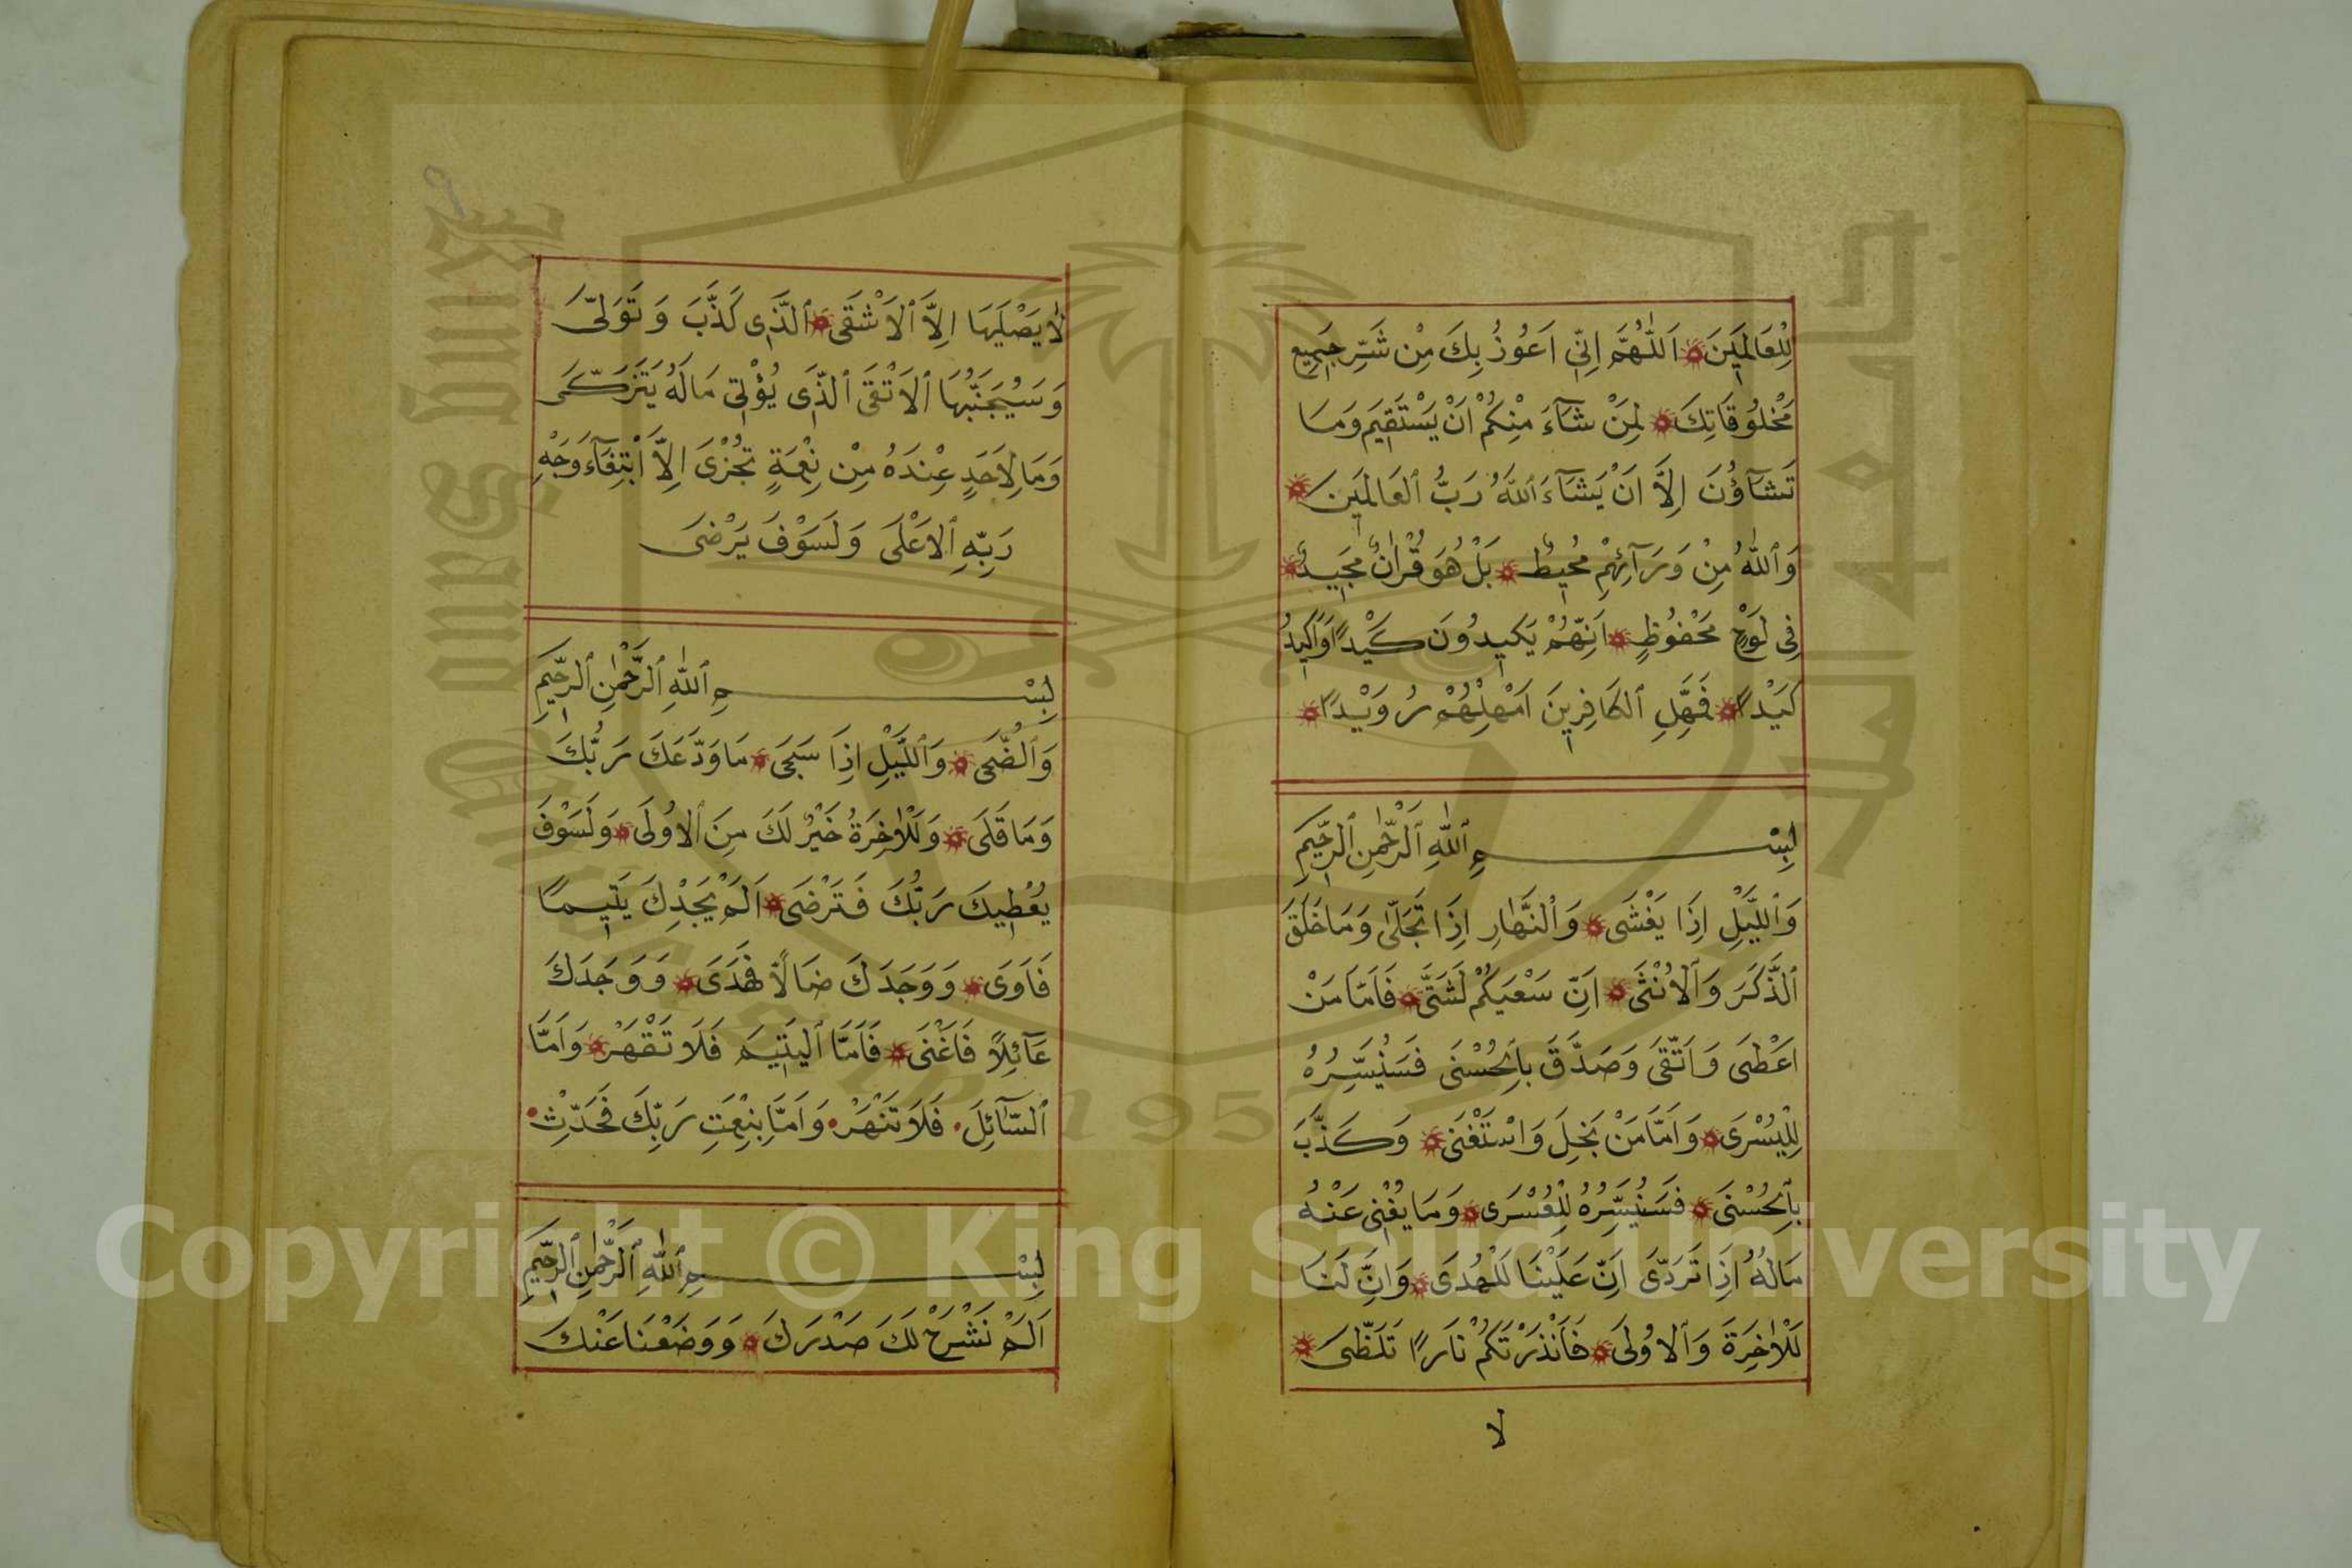 لِلْعَالَمِينَ اَللّٰهُمَّ اِنِّي اَعُوذُ بِكَ مِنْ شَرِّ جَمِيعِ
مَخْلُوقَاتِكَ لِمَنْ شَآءَ مِنْكُمْ اَنْ يَسْتَقِيمَ وَمَا
تَشَآؤُنَ اِلَّا اَنْ يَشَآءَ اللّٰهُ رَبُّ الْعَالَمِينَ
وَاللّٰهُ مِنْ وَرَآئِهِمْ مُحِيطٌ بَلْ هُوَ قُرْاٰنٌ مَجِيدٌ
فِي لَوْحٍ مَحْفُوظٍ اِنَّهُمْ يَكِيدُونَ كَيْدًا وَاَكِيدُ
كَيْدًا فَمَهِّلِ الْكَافِرِينَ اَمْهِلْهُمْ رُوَيْدًا
بِسْمِ اللّٰهِ الرَّحْمٰنِ الرَّحِيمِ
وَالَّيْلِ اِذَا يَغْشَى وَالنَّهَارِ اِذَا تَجَلّٰى وَمَا خَلَقَ
الذَّكَرَ وَالْاُنْثَى اِنَّ سَعْيَكُمْ لَشَتَّى فَاَمَّا مَنْ
اَعْطَى وَاتَّقَى وَصَدَّقَ بِالْحُسْنَى فَسَنُيَسِّرُهُ
لِلْيُسْرَى وَاَمَّا مَنْ بَخِلَ وَاسْتَغْنَى وَكَذَّبَ
بِالْحُسْنَى فَسَنُيَسِّرُهُ لِلْعُسْرَى وَمَا يُغْنِى عَنْهُ
مَالُهُ اِذَا تَرَدَّى اِنَّ عَلَيْنَا لَلْهُدَى وَاِنَّ لَنَا
لَلْاٰخِرَةَ وَالْاُولَى فَاَنْذَرْتُكُمْ نَارًا تَلَظَّى
لا
٩
لَا يَصْلَيهَا اِلَّا الْاَشْقَى الَّذِى كَذَّبَ وَتَوَلَّى
وَسَيُجَنَّبُهَا الْاَتْقَى الَّذِى يُؤْتِى مَالَهُ يَتَزَكَّى
وَمَا لِاَحَدٍ عِنْدَهُ مِنْ نِعْمَةٍ تُجْزَى اِلَّا ابْتِغَآءَ وَجْهِ
رَبِّهِ الْاَعْلَى وَلَسَوْفَ يَرْضَى
بِسْمِ اللّٰهِ الرَّحْمٰنِ الرَّحِيمِ
وَالضُّحَى وَالَّيْلِ اِذَا سَجَى مَا وَدَّعَكَ رَبُّكَ
وَمَا قَلَى وَلَلْاٰخِرَةُ خَيْرٌ لَكَ مِنَ الْاُولَى وَلَسَوْفَ
يُعْطِيكَ رَبُّكَ فَتَرْضَى اَلَمْ يَجِدْكَ يَتِيمًا
فَاَوَى وَوَجَدَكَ ضَالًّا فَهَدَى وَوَجَدَكَ
عَآئِلًا فَاَغْنَى فَاَمَّا الْيَتِيمَ فَلَا تَقْهَرْ وَاَمَّا
السَّآئِلَ فَلَا تَنْهَرْ وَاَمَّا بِنِعْمَتِ رَبِّكَ فَحَدِّثْ
بِسْمِ اللّٰهِ الرَّحْمٰنِ الرَّحِيمِ
اَلَمْ نَشْرَحْ لَكَ صَدْرَكَ وَوَضَعْنَا عَنْكَ
Copyright © King Saud University
King Saud University
جامعة الملك سعود
1957